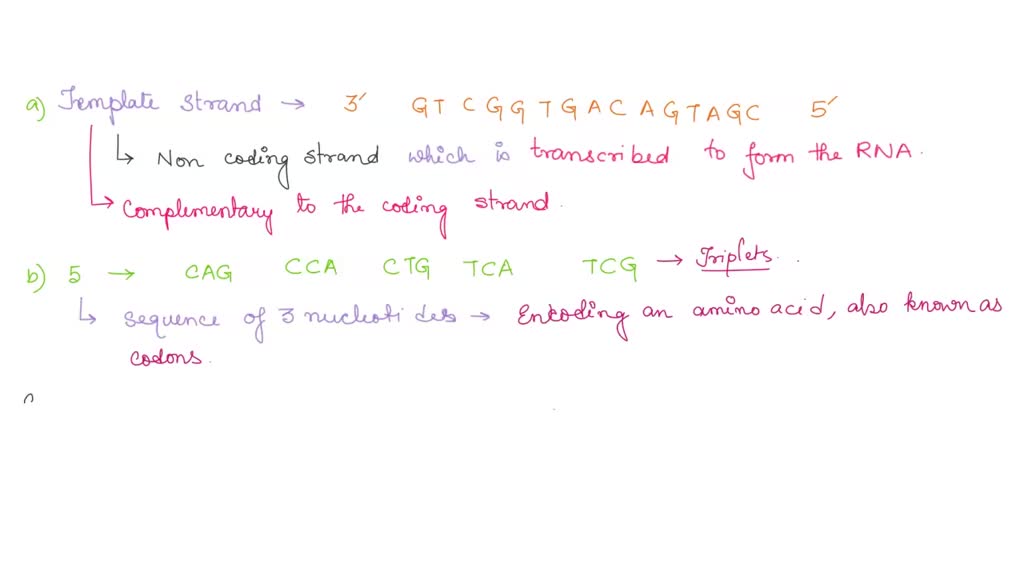 a) Template strand → 3′ GT C G G T G A C A G T A G C 5′
↳ Non coding strand which is transcribed to form the RNA.
↳ Complementary to the coding strand.
b) 5 → CAG CCA CTG TCA TCG → Triplets.
↳ Sequence of 3 nucleotides → Encoding an amino acid, also known as
codons.